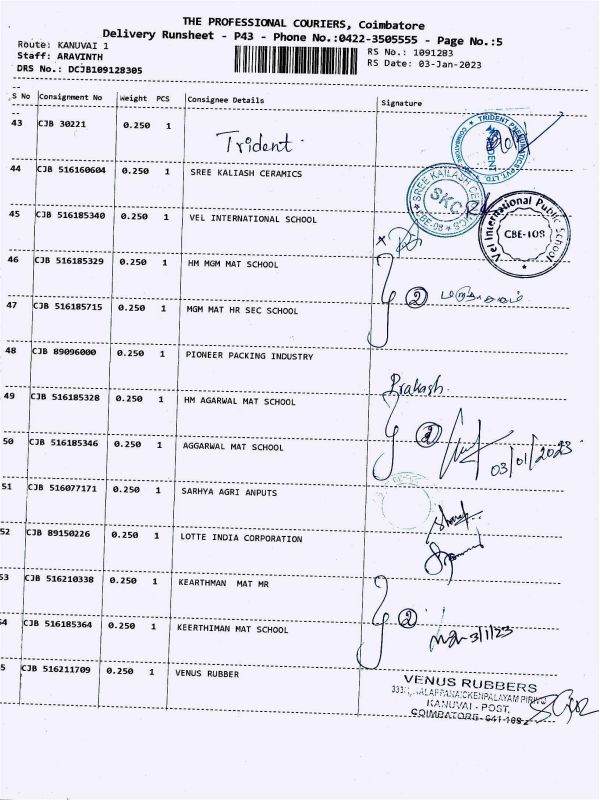 THE PROFESSIONAL COURIERS, Coimbatore
Delivery Runsheet - P43 - Phone No.:0422-3505555 - Page No.:5
Route: KANUVAI 1
Staff: ARAVINTH
DRS No.: DCJB109128305
RS No.: 1091283
RS Date: 03-Jan-2023
S No Consignment No Weight PCS Consignee Details Signature
43 CJB 30221 0.250 1 Trident
44 CJB 516160604 0.250 1 SREE KALIASH CERAMICS
SKC
CBE-08
45 CJB 516185340 0.250 1 VEL INTERNATIONAL SCHOOL
Vel International Public School
CBE-108
46 CJB 516185329 0.250 1 HM MGM MAT SCHOOL
2
47 CJB 516185715 0.250 1 MGM MAT HR SEC SCHOOL
48 CJB 89096000 0.250 1 PIONEER PACKING INDUSTRY
Prakash
49 CJB 516185328 0.250 1 HM AGARWAL MAT SCHOOL
2
50 CJB 516185346 0.250 1 AGGARWAL MAT SCHOOL
03/01/2023
51 CJB 516077171 0.250 1 SARHYA AGRI ANPUTS
52 CJB 89150226 0.250 1 LOTTE INDIA CORPORATION
53 CJB 516210338 0.250 1 KEARTHMAN MAT MR
2
54 CJB 516185364 0.250 1 KEERTHIMAN MAT SCHOOL
3/1/23
5 CJB 516211709 0.250 1 VENUS RUBBER
VENUS RUBBERS
KANUVAI - POST,
COIMBATORE - 641 108